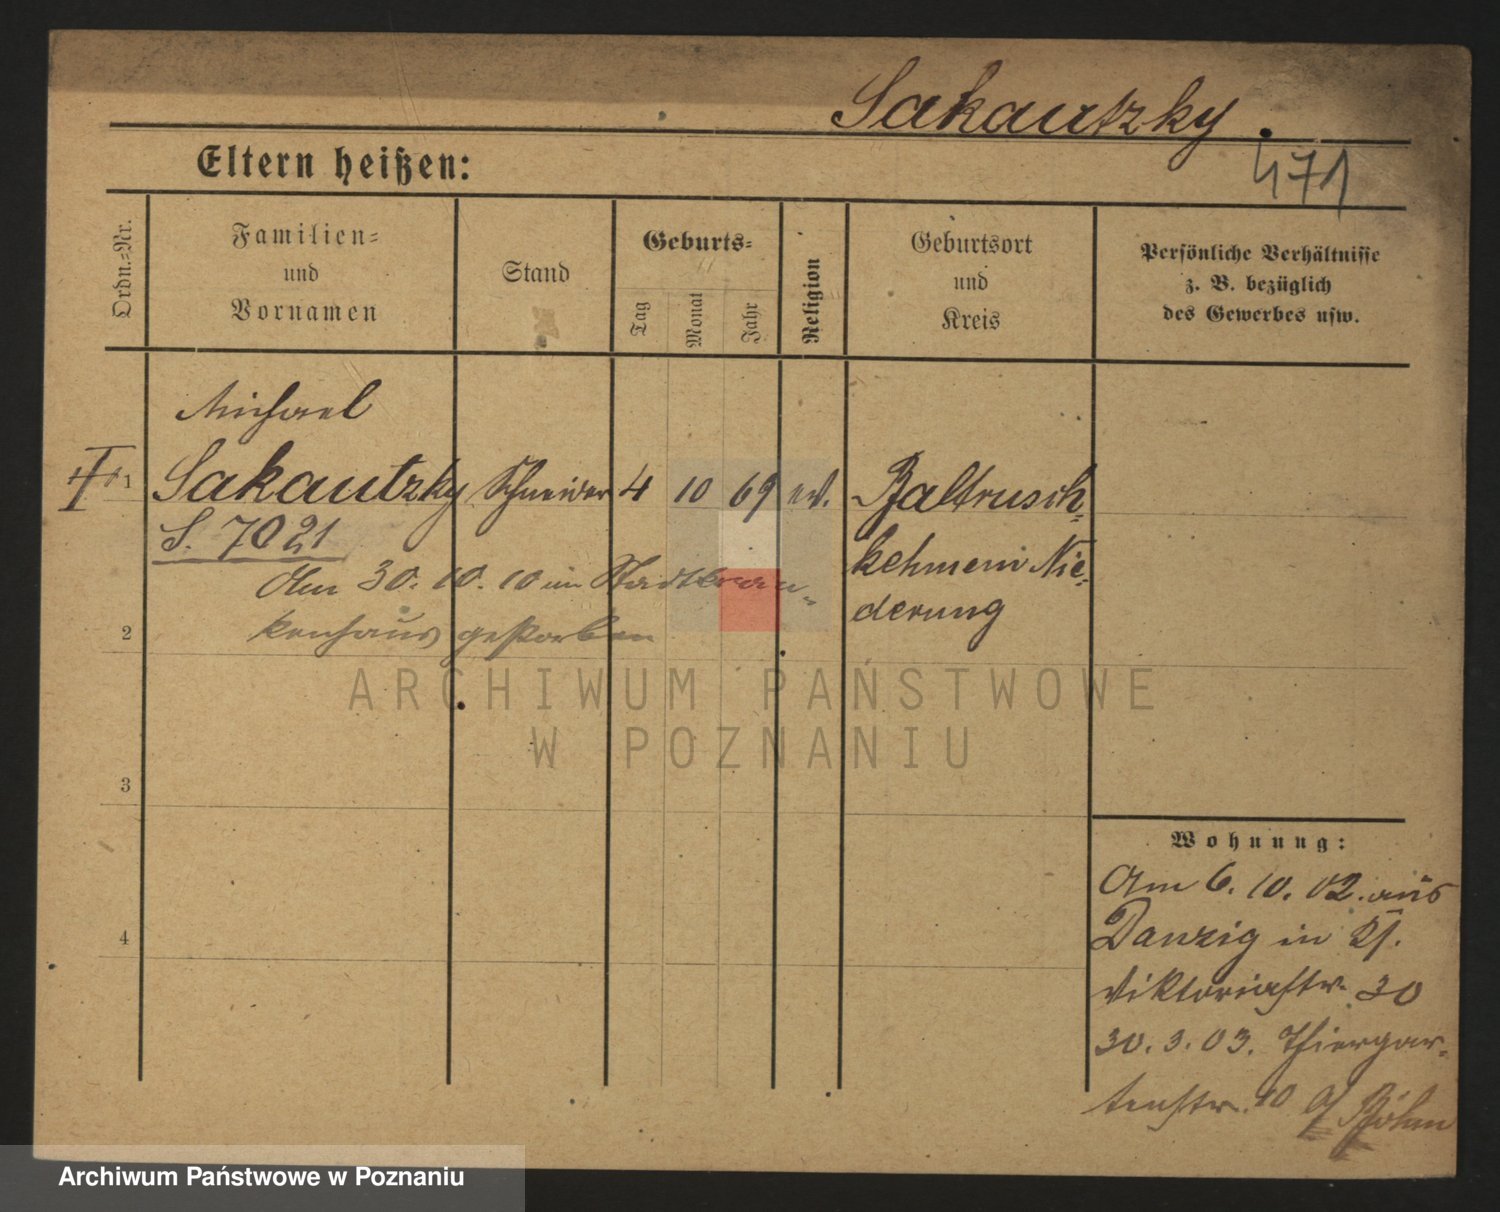 Sakautzky.
471
Eltern heißen:
Ordn.-Nr.
Familien-
und
Vornamen
Stand
Geburts-
Tag
Monat
Jahr
Religion
Geburtsort
und
Kreis
Persönliche Verhältnisse
z. B. bezüglich
des Gewerbes usw.
Michael
1 Sakautzky Schneider 4 10 69 ev. Baltrusch-
S. 7021
kehmen Nie-
derung
Am 30. 10. 10 im Stadtkran-
2
kenhaus gestorben
ARCHIWUM PAŃSTWOWE
W POZNANIU
3
4
Wohnung:
Am 6. 10. 02. aus
Danzig in
Viktoriastr. 30
30. 3. 03. Thiergar-
tenstr. 10 Böhm
Archiwum Państwowe w Poznaniu